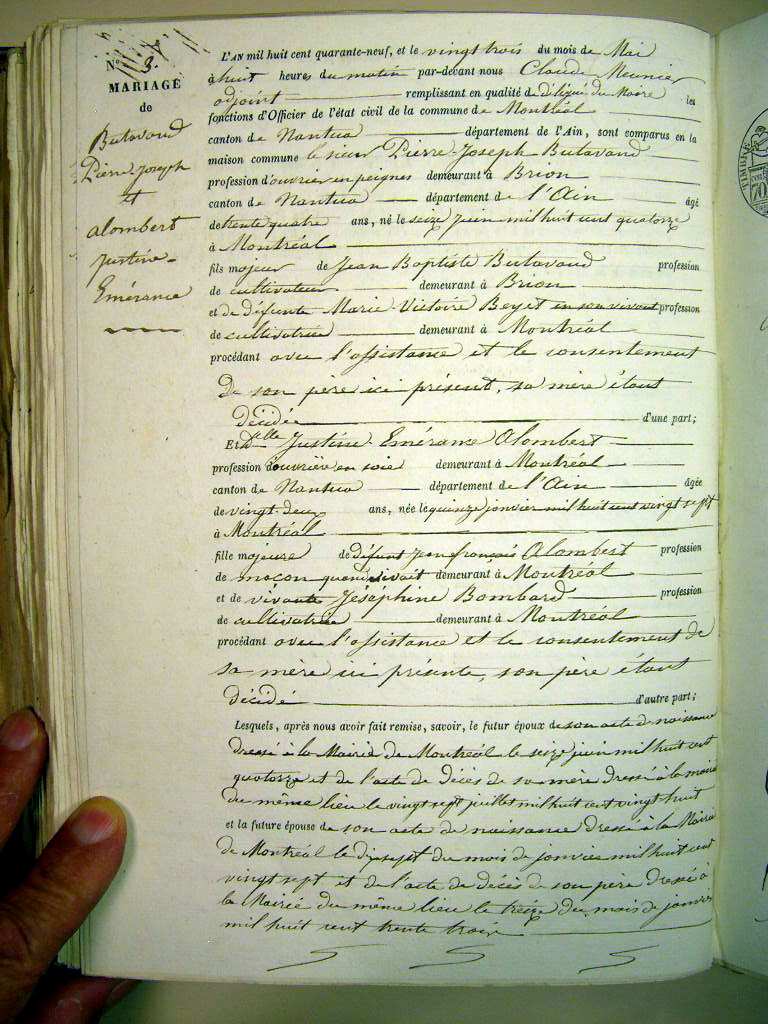 N.° 3.
MARIAGE
de
Butavand
Pierre-Joseph
et
alombert
Justine-
Emérance
L'AN mil huit cent quarante-neuf, et le vingt trois du mois de Mai
à huit heures du matin par-devant nous Claude Meunier
adjoint remplissant en qualité de délégué du Maire les
fonctions d'Officier de l'état civil de la commune de Montréal
canton de Nantua département de l'Ain, sont comparus en la
maison commune le sieur Pierre-Joseph Butavand
profession d'ouvrier en peignes demeurant à Brion
canton de Nantua département de l'Ain âgé
de trente quatre ans, né le seize Juin mil huit cent quatorze
à Montréal
fils majeur de Jean Baptiste Butavand profession
de cultivateur demeurant à Brion
et de défunte Marie-Victoire Beyet en son vivant profession
de cultivatrice demeurant à Montréal
procédant avec l'assistance et le consentement
de son père ici présent, sa mère étant
décédée d'une part;
ET dlle Justine Emérance Alombert
profession d'ouvrière en soie demeurant à Montréal
canton de Nantua département de l'Ain âgée
de vingt-deux ans, née le quinze janvier mil huit cent vingt sept
à Montréal
fille majeure de défunt Jean françois Alombert profession
de maçon quand vivait demeurant à Montréal
et de vivante Joséphine Bombard profession
de cultivatrice demeurant à Montréal
procédant avec l'assistance et le consentement de
sa mère ici présente, son père étant
décédé d'autre part;
Lesquels, après nous avoir fait remise, savoir, le futur époux de son acte de naissance
dressé à la Mairie de Montréal le seize juin mil huit cent
quatorze et de l'acte de décès de sa mère dressé à la mairie
du même lieu le vingt sept juillet mil huit cent vingt huit
et la future épouse de son acte de naissance dressé à la Mairie
de Montréal le dix sept du mois de janvier mil huit cent
vingt sept et de l'acte de décès de son père dressé à
la Mairie du même lieu le treize du mois de janvier
mil huit cent trente trois
TIMBRE
70